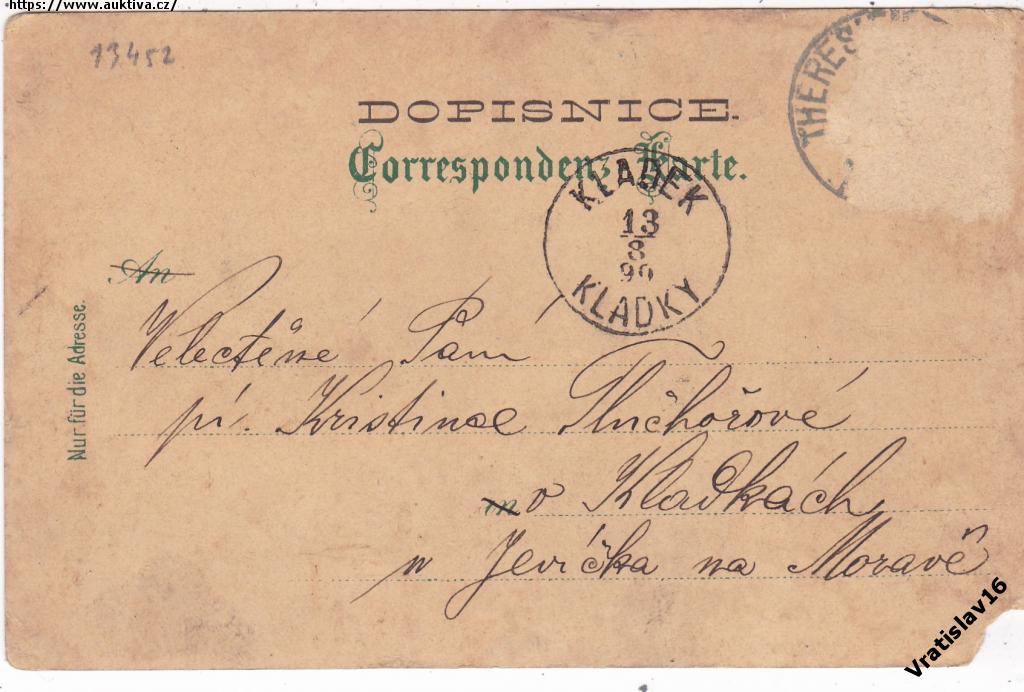 https://www.auktiva.cz/
13452
DOPISNICE.
Correspondenz-Karte.
THERES
KLADEK
13
8
99
KLADKY
An
Velectěné Paní
pí. Kristince Tlučhořové
in v Kladkách
u Jevíčka na Moravě
Nur für die Adresse.
Vratislav16